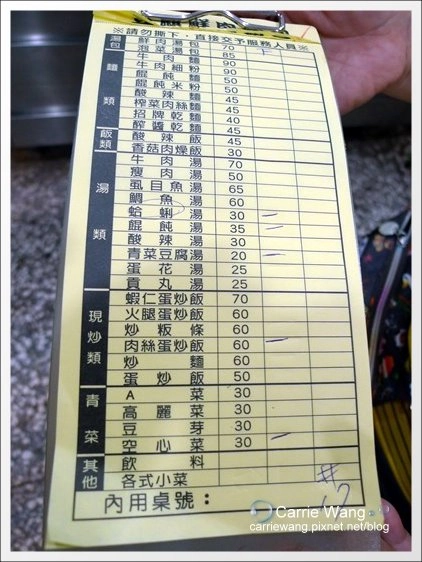 ※請勿撕下，直接交予服務人員※
湯包
鮮肉湯包
泡菜湯包 70
麵類
牛肉麵
牛肉細粉 90
餛飩麵
餛飩米粉 50
酸辣麵
榨菜肉絲麵 45
招牌乾麵 45
醡醬乾麵 45
飯類
酸辣飯 45
香菇肉燥飯 30
湯類
牛肉湯 70
瘦肉湯 50
虱目魚湯 65
鯛魚湯 60
蛤蜊湯 30
餛飩湯 35
酸辣湯 30
青菜豆腐湯 20
蛋花湯 25
貢丸湯 25
現炒類
蝦仁蛋炒飯 70
火腿蛋炒飯 60
炒粄條 60
肉絲蛋炒飯 60
炒麵 60
蛋炒飯 50
青菜
A菜 30
高麗菜 30
豆芽 30
空心菜 30
其他
飲料
各式小菜
內用桌號：
Carrie Wang
carriewang.pixnet.net/blog